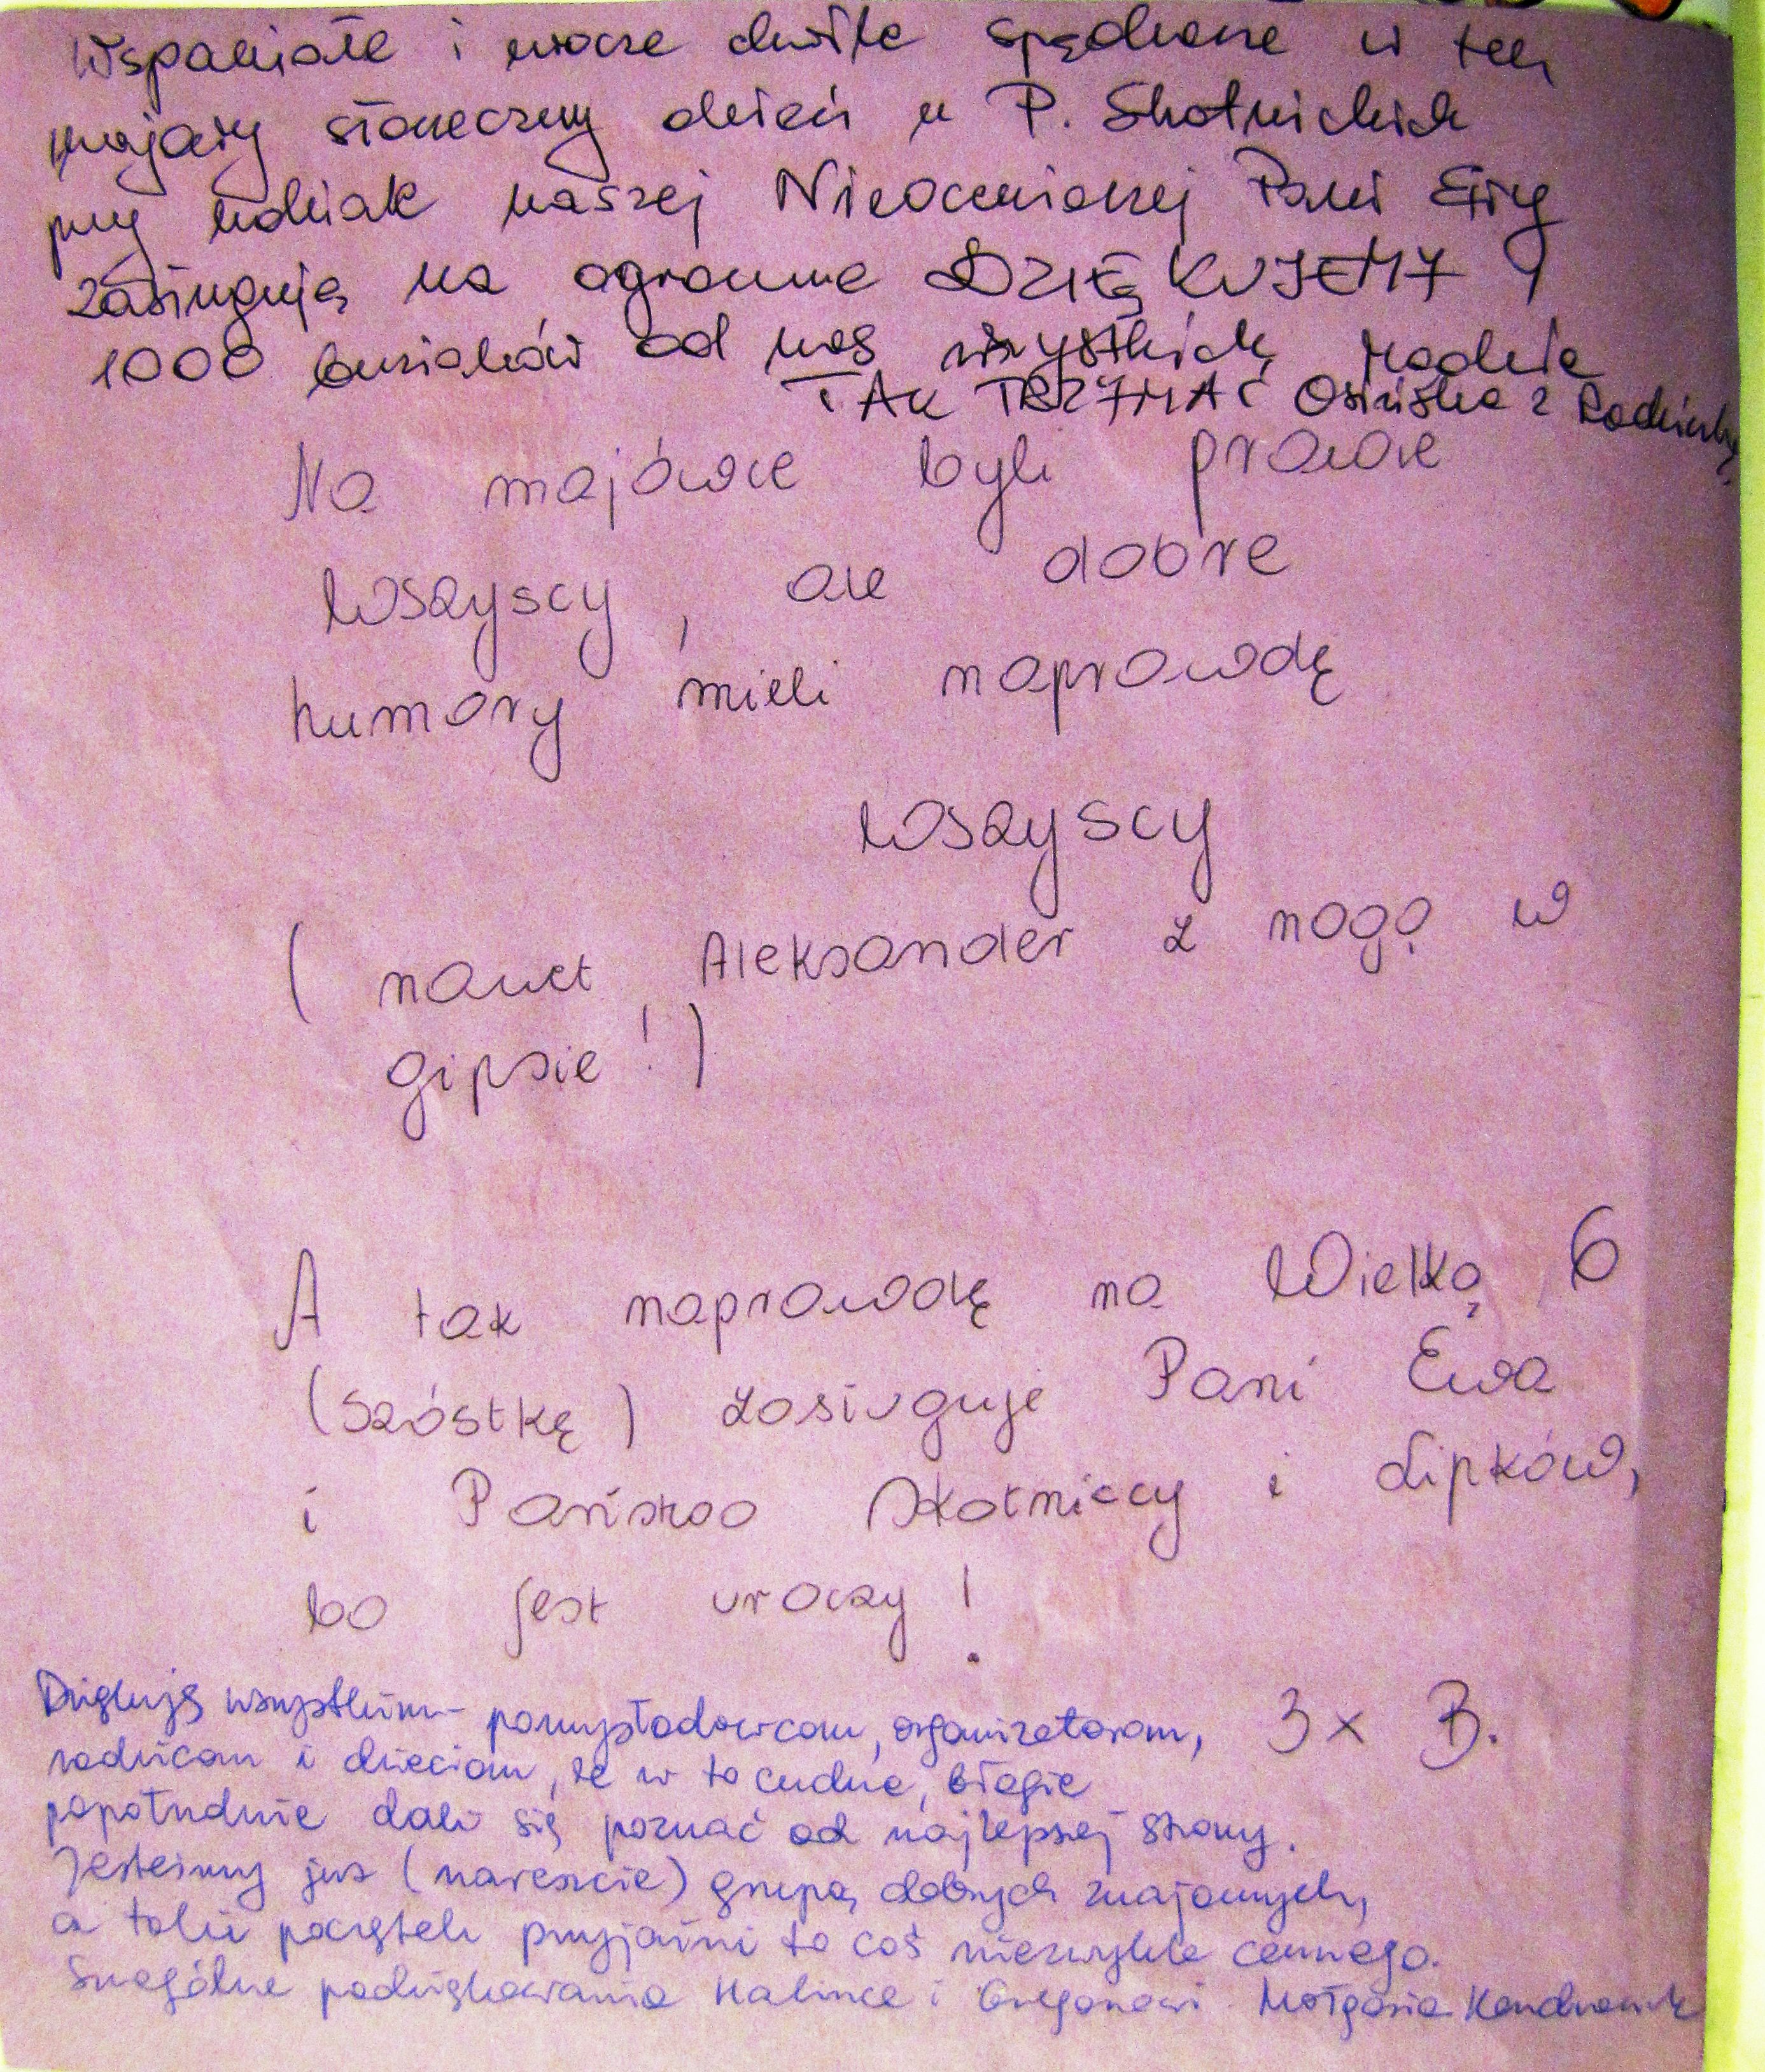 Wspaniałe i urocze chwile spędzone w ten
majowy słoneczny dzień u P. Skotnickich
przy udziale naszej Nieocenionej Pani Ewy
zasługują na ogromne DZIĘKUJEMY!
1000 buziaków od nas wszystkich
TAK TRZYMAĆ Osińska z Rodzinką
Na majówce byli prawie
wszyscy, ale dobre
humory mieli naprawdę
wszyscy
( nawet Aleksander z nogą w
gipsie! )
A tak naprawdę na Wielką 6
(szóstkę) zasługuje Pani Ewa
i Państwo Skotniccy i Lipków,
bo jest uroczy!
3 x B.
Dziękuję wszystkim - pomysłodawcom, organizatorom,
rodzicom i dzieciom, że w to cudne, błogie
popołudnie dali się poznać od najlepszej strony.
Jesteśmy już (nareszcie) grupą dobrych znajomych,
a taki początek przyjaźni to coś niezwykle cennego.
Szczególne podziękowania Halince i Małgosia